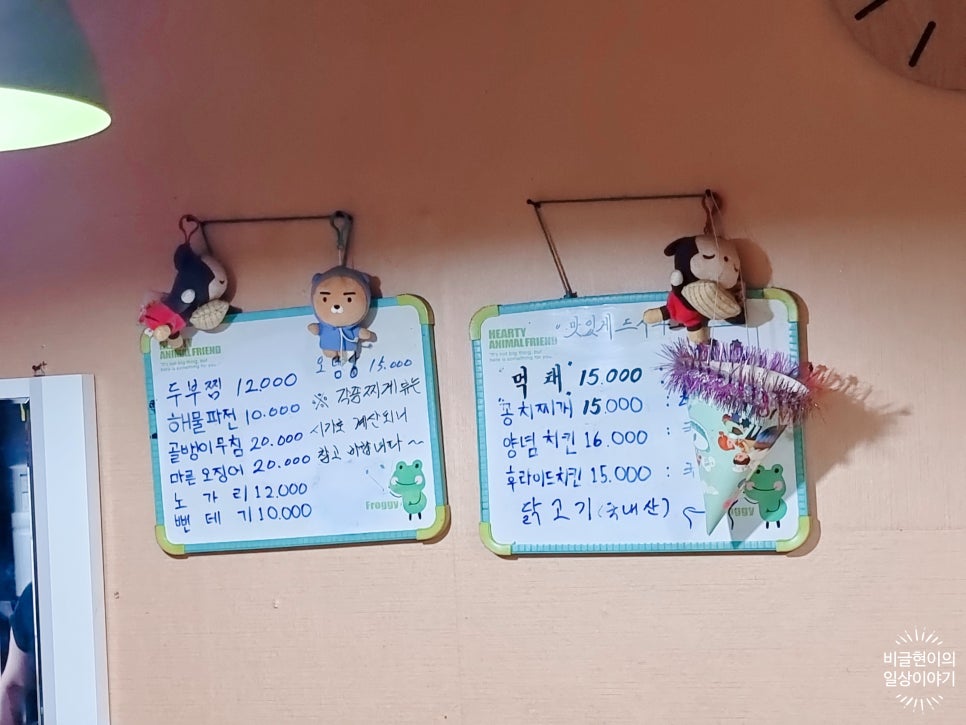 ANIMAL FRIEND
"It's not big thing, but
here is something for you."
15.000
두부찜 12.000
해물파전 10.000
골뱅이무침 20.000
마른오징어 20.000
노 가 리 12.000
뻔 데 기 10.000
※ 각종찌게류는
시가로 계산되니
참고 바랍니다~
Froggy
HEARTY
ANIMAL FRIEND
"It's not big thing, but
here is something for you."
맛있게 드시
먹 태 15.000
꽁치찌개 15.000 :
양념치킨 16.000 :
후라이드치킨 15.000 :
닭고기(국내산)
Froggy
비글현이의
일상이야기